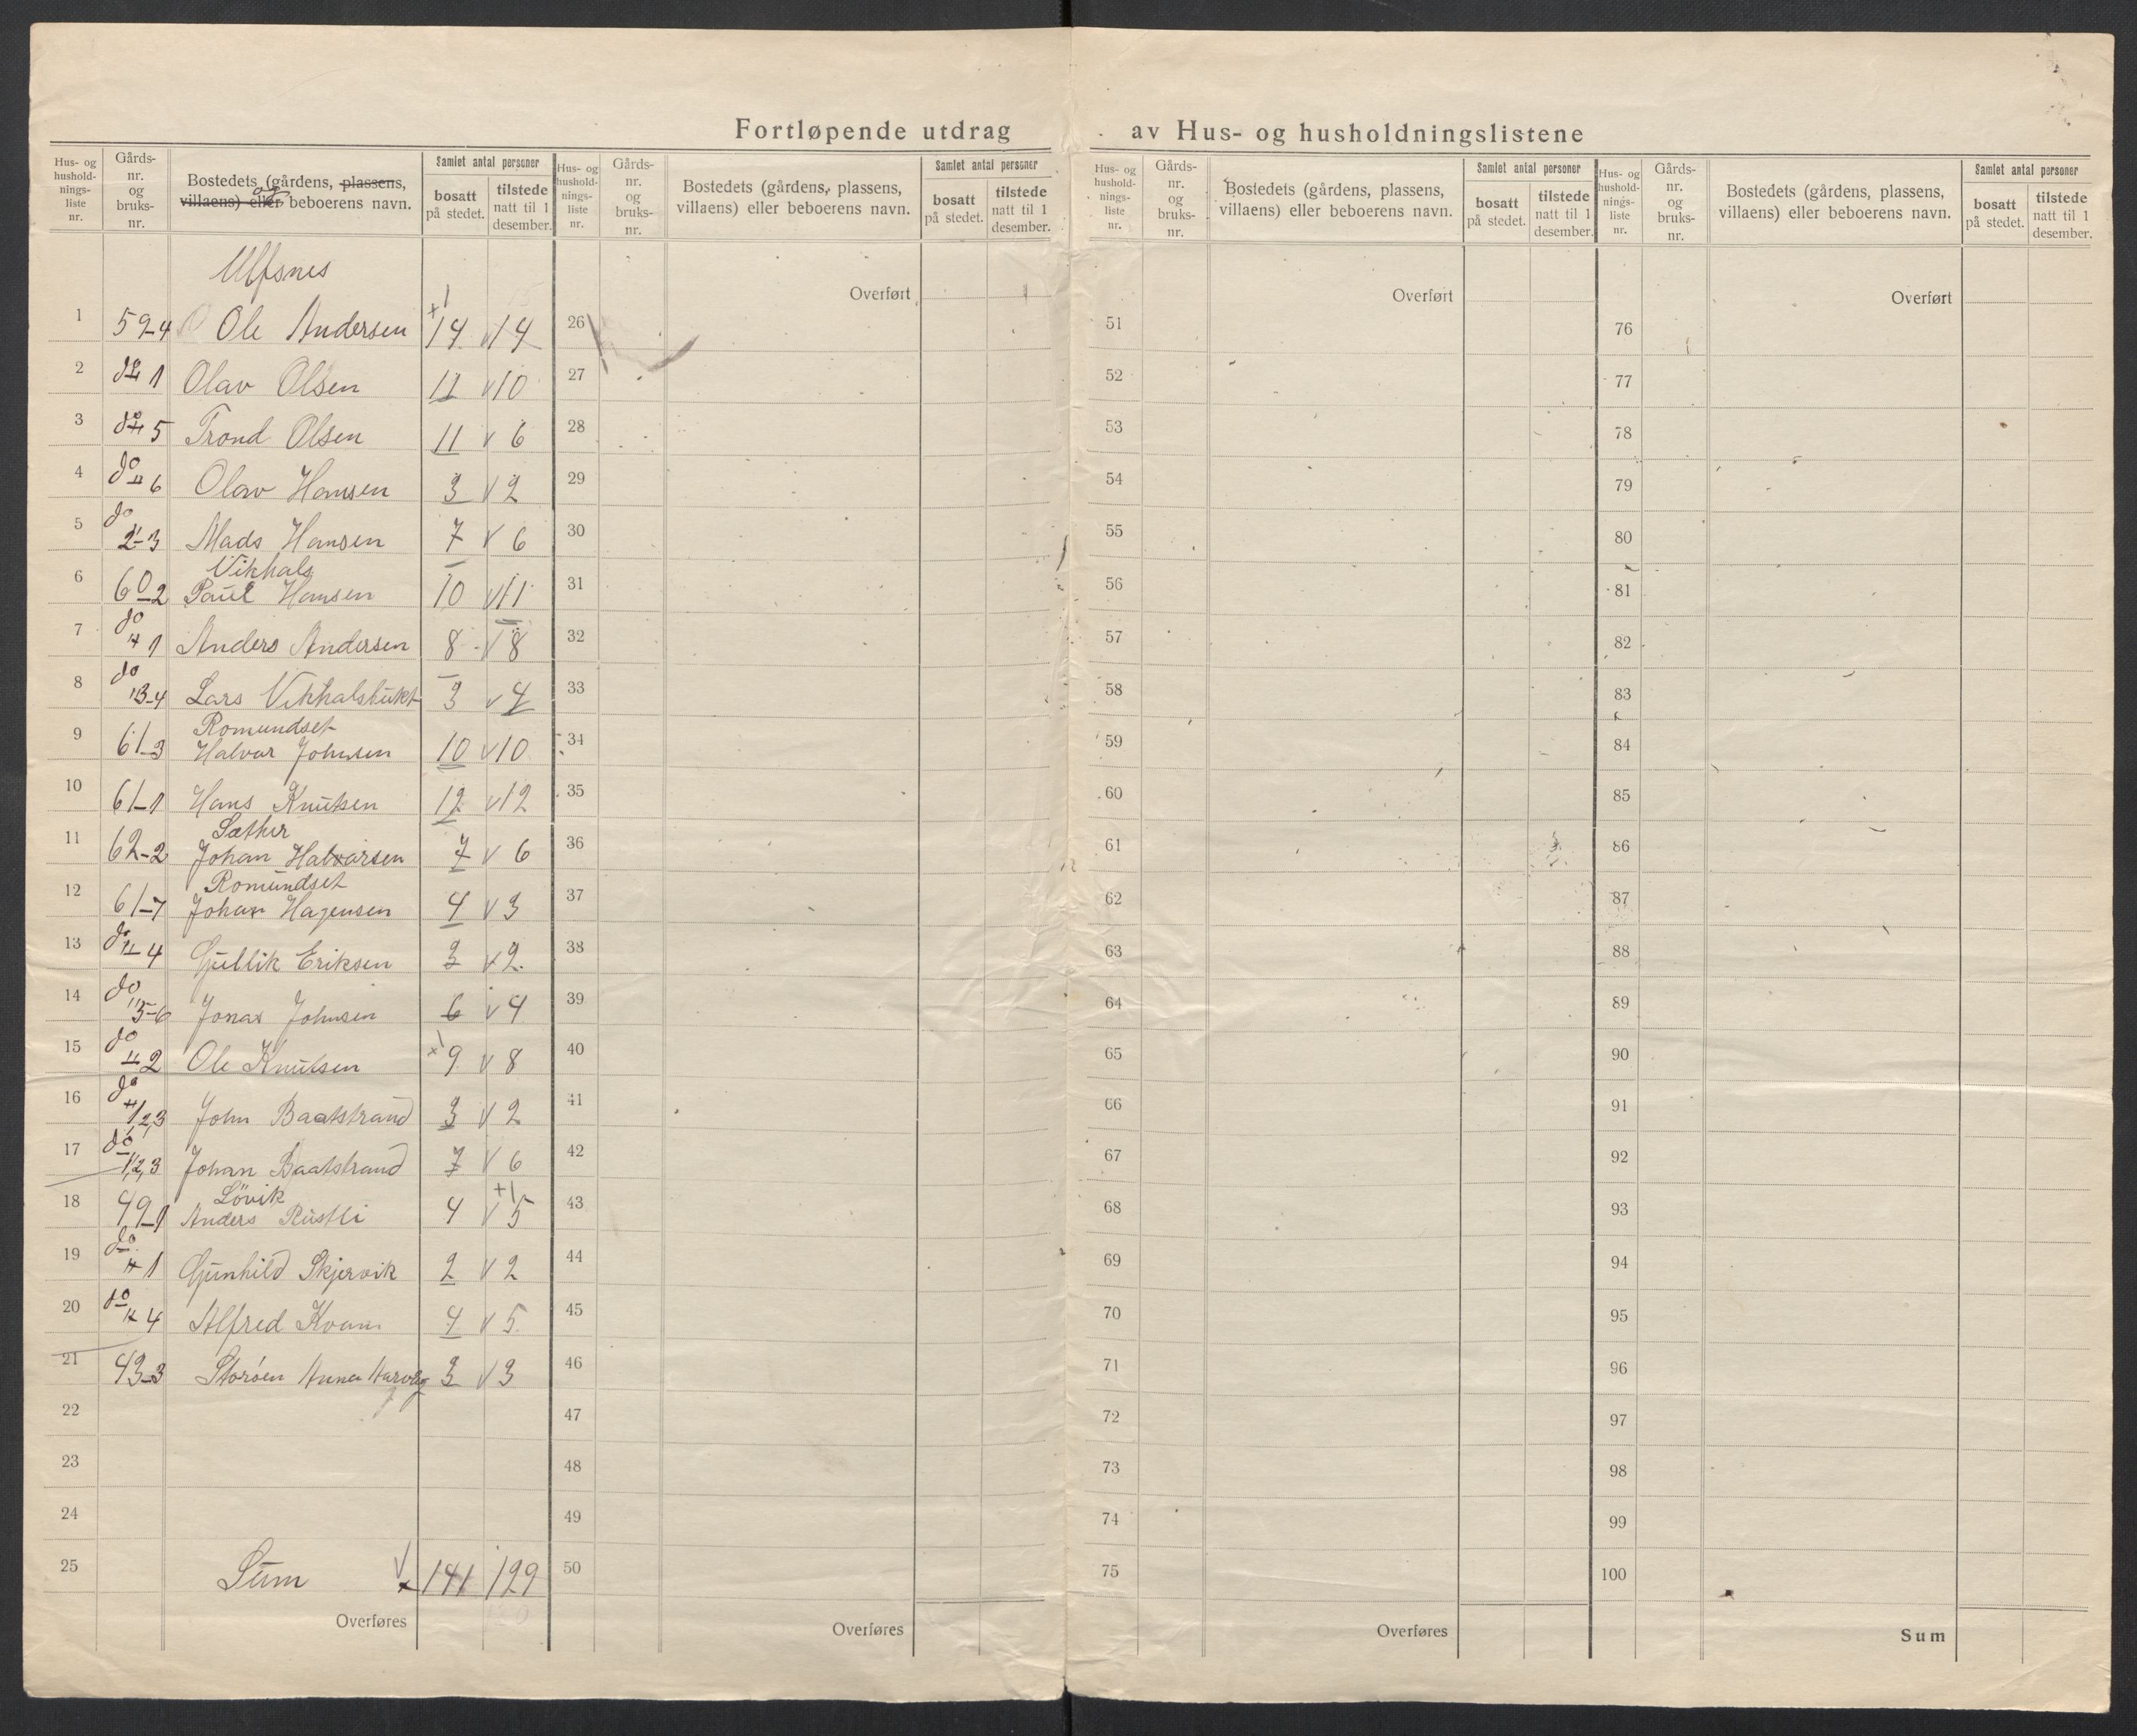 Fortløpende utdrag av Hus- og husholdningslistene
Hus- og hushold- nings- liste nr.
Gårds- nr. og bruks- nr.
Bostedets (gårdens, plassens, villaens) eller og beboerens navn.
Samlet antal personer
bosatt på stedet.
tilstede natt til 1 desember.
Hus- og hushold- nings- liste nr.
Gårds- nr. og bruks- nr.
Bostedets (gårdens, plassens, villaens) eller beboerens navn.
Samlet antal personer
bosatt på stedet.
tilstede natt til 1 desember.
Hus- og hushold- nings- liste nr.
Gårds- nr. og bruks- nr.
Bostedets (gårdens, plassens, villaens) eller beboerens navn.
Samlet antal personer
bosatt på stedet.
tilstede natt til 1 desember.
Hus- og hushold- nings- liste nr.
Gårds- nr. og bruks- nr.
Bostedets (gårdens, plassens, villaens) eller beboerens navn.
Samlet antal personer
bosatt på stedet.
tilstede natt til 1 desember.
Ulfsnes
+1
1 59-4 Ole Andersen 14 v 14
2 do " 1 Olav Olsen 11 v 10
3 do " 5 Trond Olsen 11 v 6
4 do " 6 Olav Hansen 3 v 2
5 do 2-3 Mads Hansen 7 v 6
Vikhals
6 60-2 Paul Hansen 10 v 11
7 do " 1 Anders Andersen 8 v 8
8 do " 3-4 Lars Vikhalsbukt 3 v 4
Romundset
9 61-3 Halvar Johnsen 10 v 10
10 61-1 Hans Knutsen 12 v 12
Sæther
11 62-2 Johan Halvarsen 7 v 6
Romundset
12 61-7 Johan Hagensen 4 v 3
13 do " 4 Gullik Eriksen 3 v 2
14 do " 5-6 Jonas Johnsen 6 v 4
15 do " 2 Ole Knutsen +1 9 v 8
16 do " 1,2,3 John Baatstrand 3 v 2
17 do " 1,2,3 Johan Baatstrand 7 v 6
Lövik +1
18 49-1 Anders Rustli 4 v 5
19 do " 1 Gunhild Skjervik 2 v 2
20 do " 4 Alfred Kvam 4 v 5
21 43-3 Storöen Anna 3 v 3
22
23
24
25 Sum v 141 129
Overføres
Overført
26
27
28
29
30
31
32
33
34
35
36
37
38
39
40
41
42
43
44
45
46
47
48
49
50
Overføres
Overført
51
52
53
54
55
56
57
58
59
60
61
62
63
64
65
66
67
68
69
70
71
72
73
74
75
Overføres
Overført
76
77
78
79
80
81
82
83
84
85
86
87
88
89
90
91
92
93
94
95
96
97
98
99
100
Sum